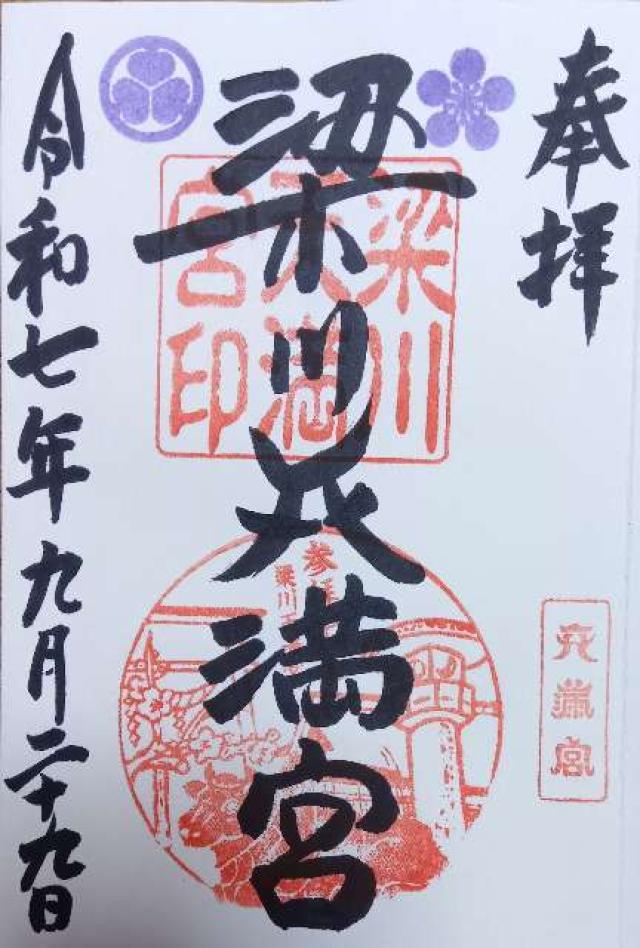 奉拝
梁川天満宮
令和七年九月二十九日
梁川
天満
宮印
参拝
梁川天
天満宮